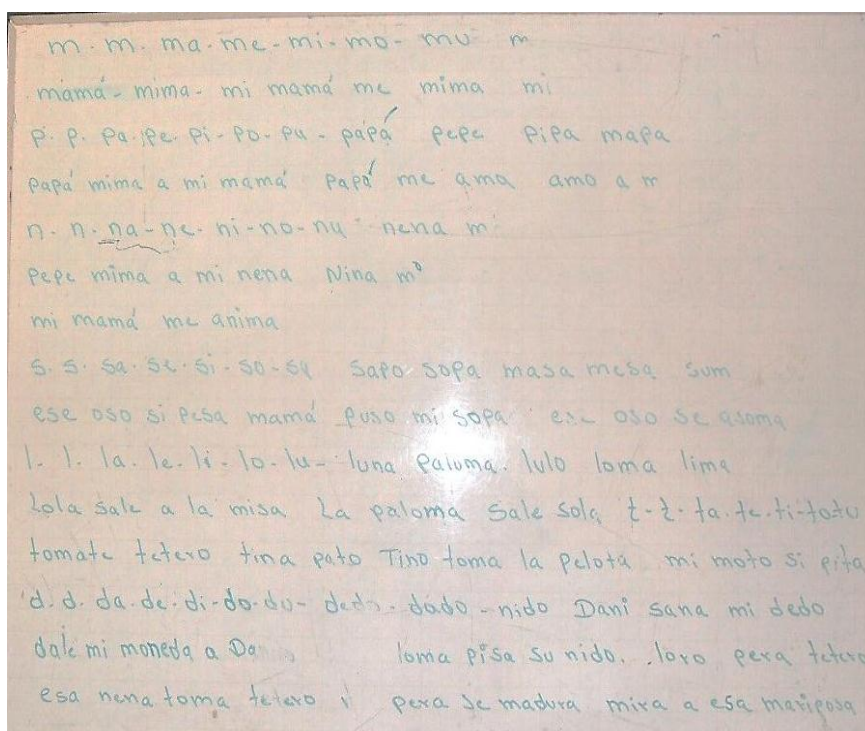 m. m. ma-me-mi-mo-mu m
mamá-mima-mi mamá me mima mi
p. p. pa. pe. pi-po-pu-papá pepe pipa mapa
papá mima a mi mamá papá me ama amo a m
n. n. na-ne. ni-no-nu nena m
Pepe mima a mi nena Nina
mi mamá me anima
s. s. sa. se. si. so-su sapo sopa masa mesa sum
ese oso si pesa mamá puso mi sopa ese oso se asoma
l. l. la. le. li. lo-lu-luna paluma. lulo loma lima
Lola sale a la misa La paloma sale sola t-t-ta.te.ti-totu
tomate tetero tina pato Tino toma la pelota mi moto si pita
d. d. da. de. di-do-du-dedo.dado-nido Dani sana mi dedo
dale mi moneda a Da loma pisa su nido. loro pera tetero
esa nena toma tetero pera se madura mira a esa mariposa